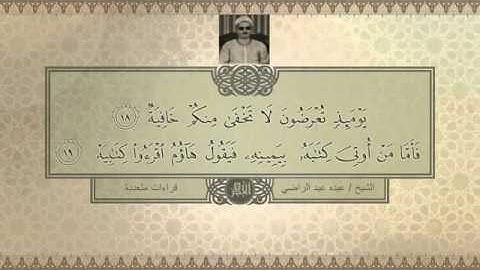 يَوْمَئِذٍ تُعْرَضُونَ لَا تَخْفَىٰ مِنكُمْ خَافِيَةٌ ١٨
فَأَمَّا مَنْ أُوتِىَ كِتَٰبَهُۥ بِيَمِينِهِۦ فَيَقُولُ هَآؤُمُ ٱقْرَءُوا۟ كِتَٰبِيَهْ ١٩
الشيخ / عبده عبد الراضي قراءات متعددة